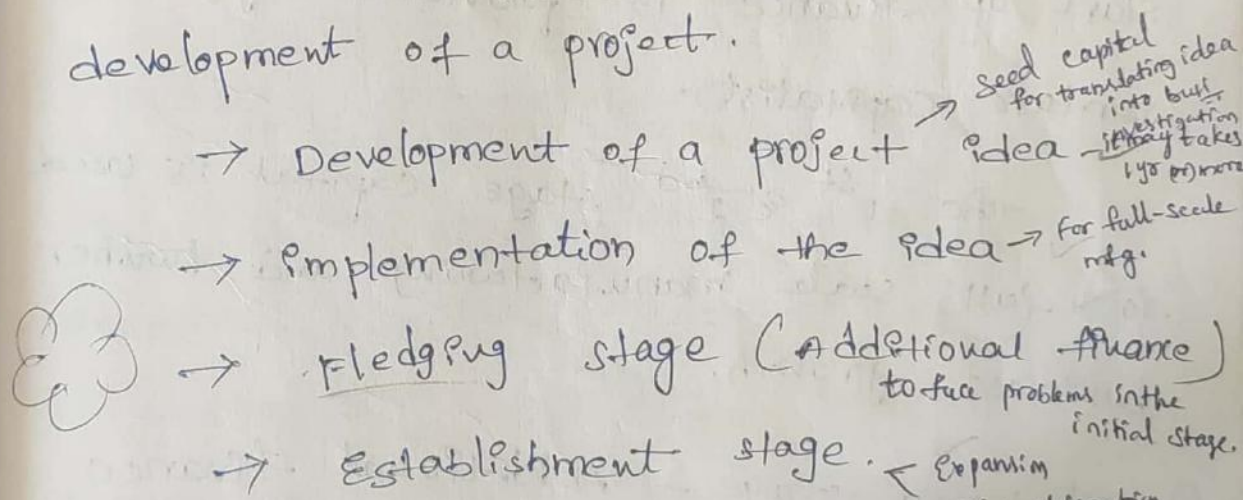 development of a project.
→ Development of a project idea → seed capital
for translating idea
into busi
investigation
it may takes
1 yr (or) more
→ implementation of the idea → for full-scale
mfg.
→ Fledging stage (Additional finance)
to face problems in the
initial stage.
→ Establishment stage. < Expansion